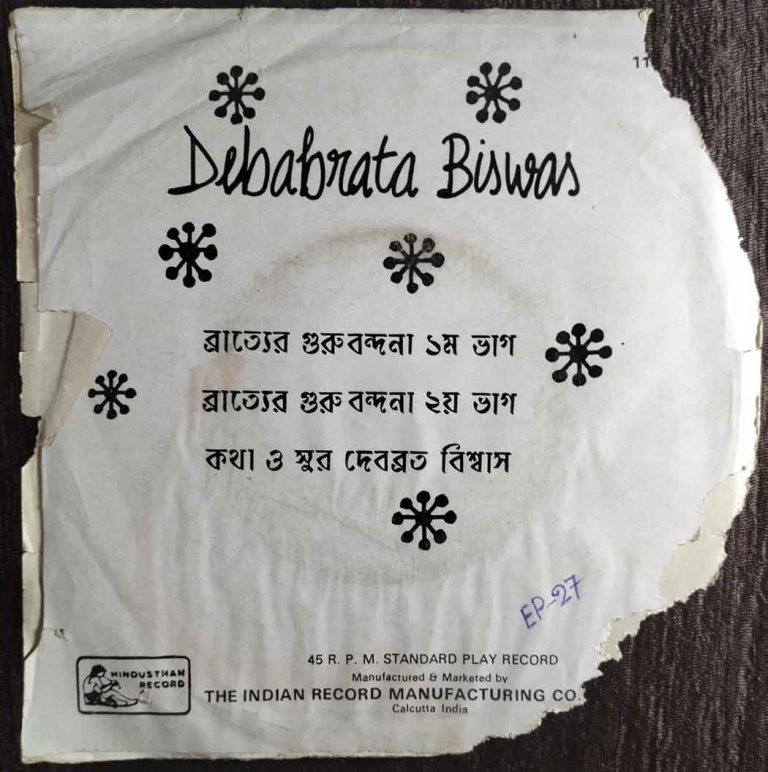 11
Debabrata Biswas
ব্রাত্যের গুরুবন্দনা ১ম ভাগ
ব্রাত্যের গুরু বন্দনা ২য় ভাগ
কথা ও সুর দেবব্রত বিশ্বাস
EP-27
45 R. P. M. STANDARD PLAY RECORD
Manufactured & Marketed by
THE INDIAN RECORD MANUFACTURING CO.
Calcutta India
HINDUSTHAN
RECORD